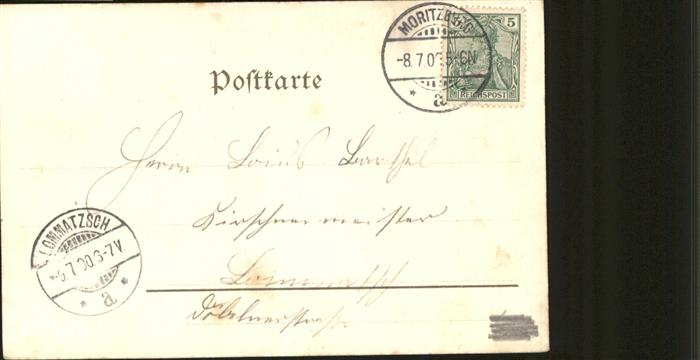 MORITZBURG
-8.7.00.5-6N.
a
5
REICHSPOST
Postkarte
Herrn Louis Barthel
Kürschnermeister
Lommatzsch
Döbelnerstraße
LOMMATZSCH
7.00.6-7V.
a